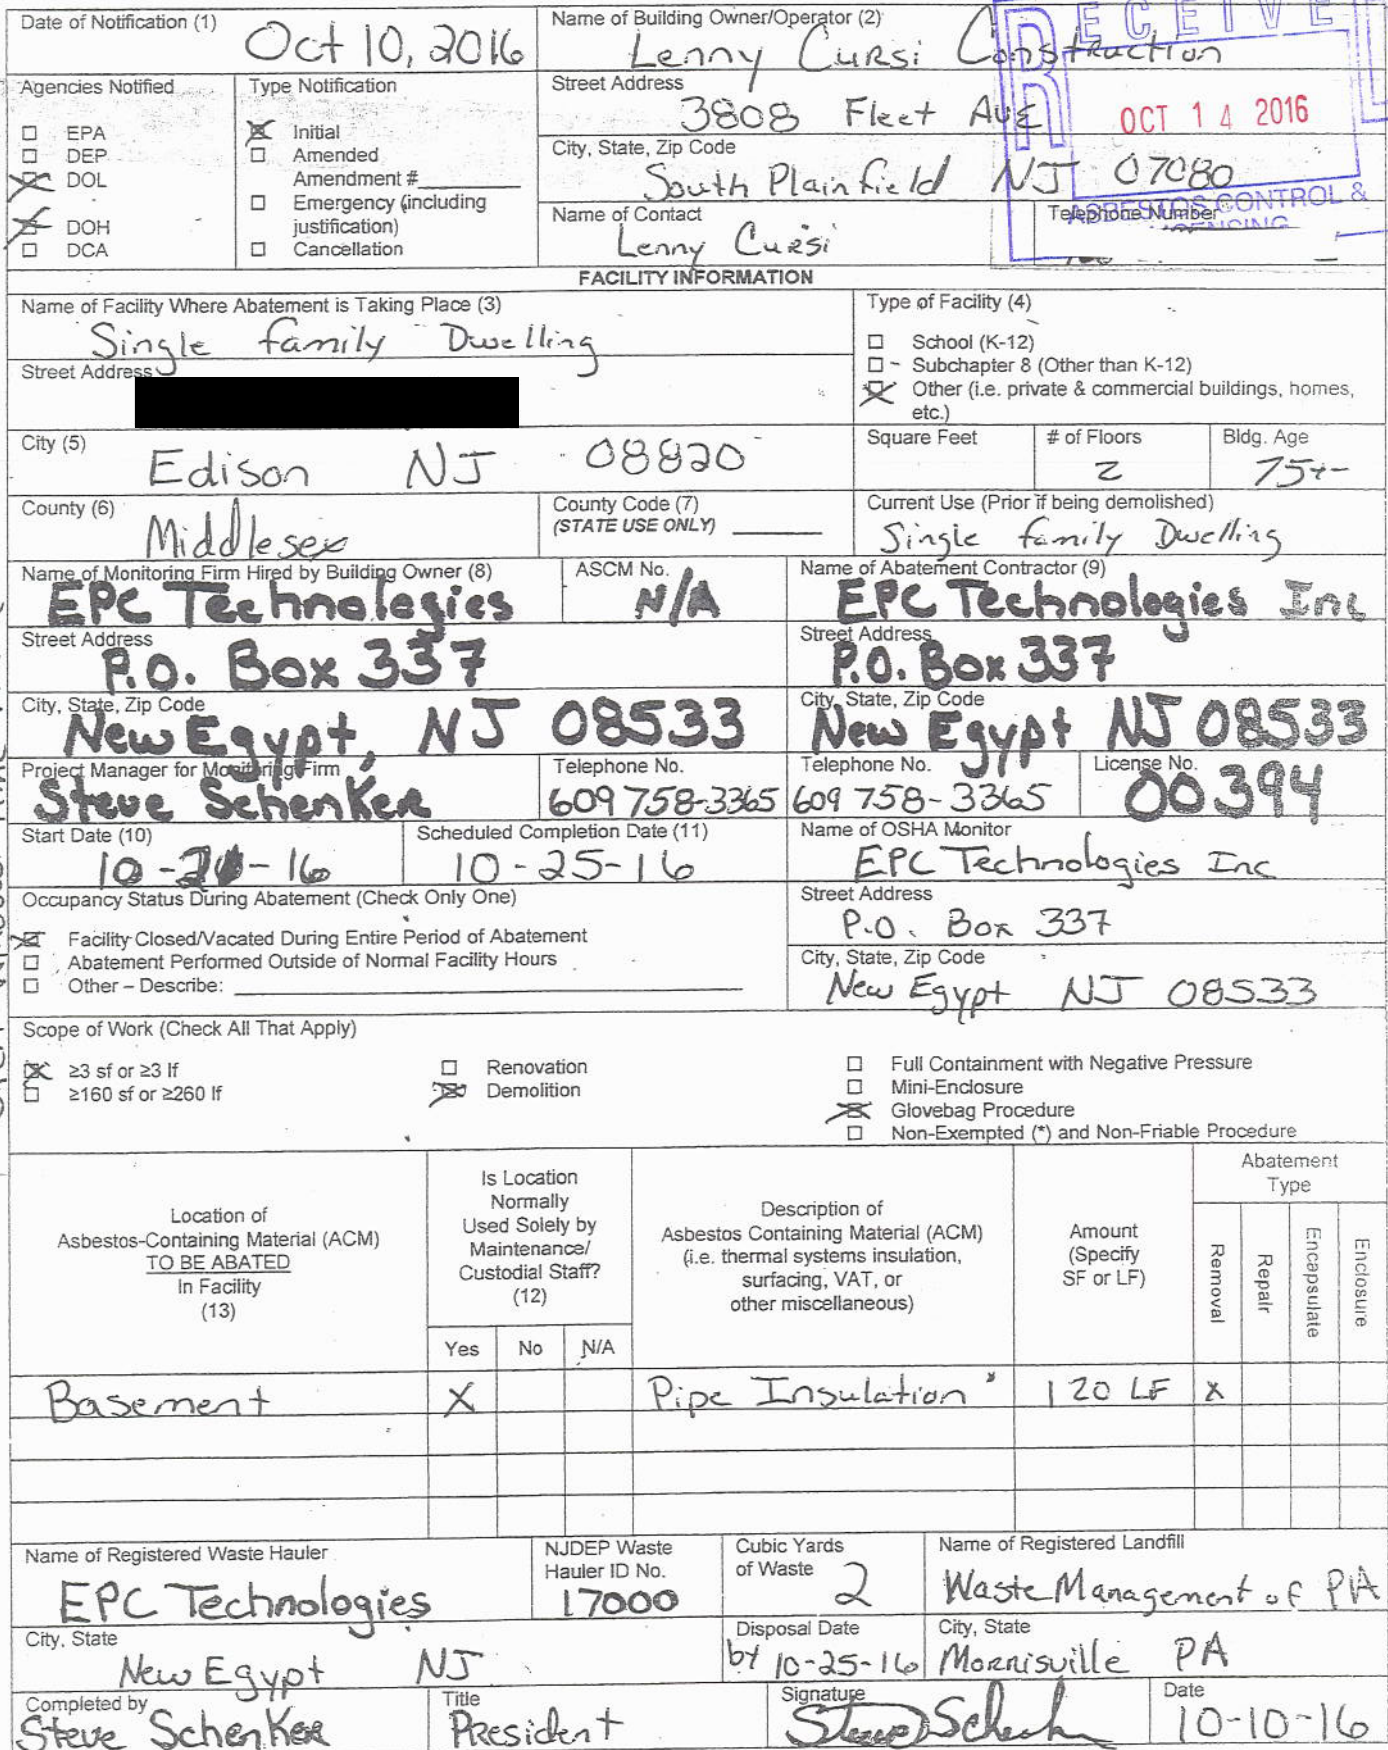 Date of Notification (1)
Oct 10, 2016
Name of Building Owner/Operator (2)
Lenny Cursi Construction
RECEIVE
Agencies Notified
Type Notification
Street Address
3808 Fleet Ave
OCT 14 2016
EPA
DEP
DOL
DOH
DCA
Initial
Amended
Amendment #
Emergency (including
justification)
Cancellation
City, State, Zip Code
South Plainfield NJ 07080
Name of Contact
Lenny Cursi
Telephone Number
ASBESTOS CONTROL &
FACILITY INFORMATION
Name of Facility Where Abatement is Taking Place (3)
Single family Dwelling
Type of Facility (4)
School (K-12)
Subchapter 8 (Other than K-12)
Other (i.e. private & commercial buildings, homes,
etc.)
Street Address
City (5)
Edison NJ 08820
Square Feet
# of Floors
2
Bldg. Age
75+-
County (6)
Middlesex
County Code (7)
(STATE USE ONLY)
Current Use (Prior if being demolished)
Single family Dwelling
Name of Monitoring Firm Hired by Building Owner (8)
EPC Technologies
ASCM No.
N/A
Name of Abatement Contractor (9)
EPC Technologies Inc
Street Address
P.O. Box 337
Street Address
P.O. Box 337
City, State, Zip Code
New Egypt, NJ 08533
City, State, Zip Code
New Egypt NJ 08533
Project Manager for Monitoring Firm
Steve Schenker
Telephone No.
609 758-3365
Telephone No.
609 758-3365
License No.
00394
Start Date (10)
Scheduled Completion Date (11)
10-25-16
Name of OSHA Monitor
EPC Technologies Inc
Occupancy Status During Abatement (Check Only One)
Facility Closed/Vacated During Entire Period of Abatement
Abatement Performed Outside of Normal Facility Hours
Other – Describe:
Street Address
P.O. Box 337
City, State, Zip Code
New Egypt NJ 08533
Scope of Work (Check All That Apply)
≥3 sf or ≥3 lf
≥160 sf or ≥260 lf
Renovation
Demolition
Full Containment with Negative Pressure
Mini-Enclosure
Glovebag Procedure
Non-Exempted (*) and Non-Friable Procedure
Location of
Asbestos-Containing Material (ACM)
TO BE ABATED
In Facility
(13)
Is Location
Normally
Used Solely by
Maintenance/
Custodial Staff?
(12)
Yes No N/A
Description of
Asbestos Containing Material (ACM)
(i.e. thermal systems insulation,
surfacing, VAT, or
other miscellaneous)
Amount
(Specify
SF or LF)
Abatement
Type
Removal
Repair
Encapsulate
Enclosure
Basement X Pipe Insulation 120 LF X
Name of Registered Waste Hauler
EPC Technologies
NJDEP Waste
Hauler ID No.
17000
Cubic Yards
of Waste 2
Name of Registered Landfill
Waste Management of PA
City, State
New Egypt NJ
Disposal Date
by 10-25-16
City, State
Morrisville PA
Completed by
Steve Schenker
Title
President
Signature
Steve Schenk
Date
10-10-16